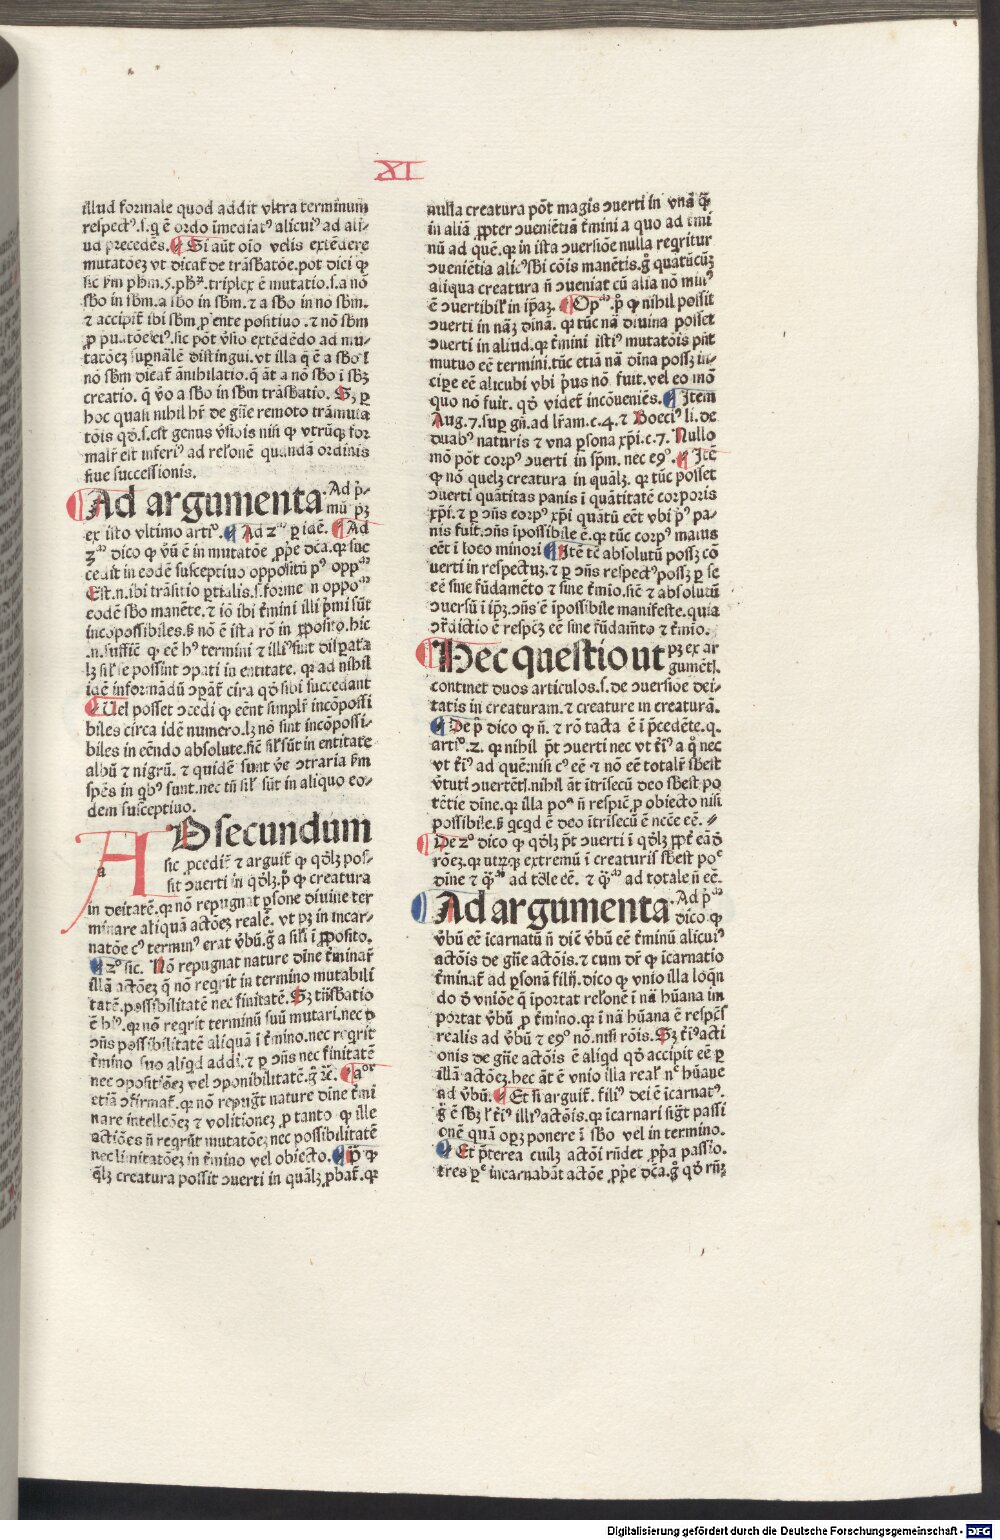 XI
illud formale quod addit vltra terminum
respectꝰ.s.q ē ordo īmediatꝰ alicuiꝰ ad ali-
ud precedēs. Si aūt oīo velis extēdere
mutatōeꝫ vt dicaꝉ de trāsbatōe.pōt dici ꝙ
sic ẜm pħm.5.pħꝫ.triplex ē mutatio.s.a nō
sb̄o in sb̄m.a sb̄o in sb̄m.⁊ a sb̄o in nō sb̄m.
⁊ accipiꝉ ibi sb̄m ꝓ ente positiuo.⁊ nō sb̄m
sic pōt v̄sio extēdēdo ad mu-
tatōeꝫ suꝑnālē distingui.vt illa q̄ ē a sb̄o ī
nō sb̄m dicaꝉ ānihilatio.q̄ āt a nō sb̄o ī sb̄ꝫ
creatio. q̄ v̄o a sb̄o in sb̄m trāsbatio. Sꝫ ꝑ
hoc quasi nihil hr̄ de gn̄e remoto trāsmuta
tōis qd̄.s.est genus v̄siōis nisi ꝙ vtrūqꝫ for
malr̄ est inferiꝰ ad relōnē quandā ordinis
siue successionis.
Ad argumenta. Ad p̄-
mū pꝫ
ex isto vltimo artiº. Ad 2ᵐ ꝑ idē. Ad
3ᵐ dico ꝙ vꝫ ē in mutatōe ꝓpe dc̄a.qꝛ suc
cedit in eodē susceptiuo oppositū pꝰ oppᵐ
Est.n.ibi trāsitio ꝑtialis.s.forme in oppoᵐ
eodē sb̄o manēte.⁊ iō ibi ꝉmini illi p̄mi sūt
incopossibiles.ẜ nō ē ista rō in ꝓposito.hic
.n.sufficē ꝙ eē hꝰ termini ⁊ illiꝰ sint disꝑata
lꝫ sil̄ se possint ꝯpati in entitate. qꝛ ad nihil
idē informādū ꝯparāꝉ circa qd̄ sibi succedant
Uel posset ꝯcedi ꝙ eēnt simplr̄ incōpossi
biles circa idē numero.lꝫ nō sint incōpossi-
biles in eēndo absolute.sic̄ sil̄ sūt in entitate
albū ⁊ nigrū. ⁊ quidē sunt v̄e ꝯtraria ẜm
sp̄es in qbꝰ sunt.nec tn̄ sil̄ sūt in aliquo eo-
dem susceptiuo.
AD secundum
a
sic ꝓcediꝉ ⁊ arguiꝉ ꝙ qd̄lꝫ pos-
sit ꝯuerti in qd̄lꝫ.p̄ ꝙ creatura
in deitatē.qꝛ nō repugnat ꝑsone diuine ter
minare aliquā actōeꝫ realē. vt pꝫ in incar-
natōe cꝰ terminꝰ erat v̄bū.g̊ a sil̄i ī ꝓposito.
2º sic. Nō repugnat nature dīne ꝉminaꝉ
illā actōeꝫ q̄ nō reqrit in termino mutabili
tatē.possibilitatē nec finitatē. Sꝫ trāsbatio
ē hᵐ. qꝛ nō reqrit terminū suū mutari.nec ꝑ
ꝯn̄s possibilitatē aliquā ī ꝉmino.nec reqrit
ꝉmino suo aliqd addi.⁊ ꝑ ꝯn̄s nec finitatē
nec ꝯpositiōeꝫ vel ꝯponibilitatē.g̊ ⁊c̄. aºʳ
etiā ꝯfirmaꝉ. qꝛ nō repug̃t nature dīne ꝉmi
nare intellcōeꝫ ⁊ volitioneꝫ.ꝓ tanto ꝙ ille
actiōes n̄ reqrūt mutatōeꝫ nec possibilitatē
nec limitatōeꝫ in ꝉmino vel obiecto. p̄ ꝙ
q̄lꝫ creatura possit ꝯuerti in quālꝫ ꝓbaꝉ. qꝛ
nulla creatura pōt magis ꝯuerti in vnā q̄
in aliā ꝓpter ꝯueniētiā ꝉmini a quo ad ꝉmi
nū ad quē.qꝛ in ista ꝯuersiōe nulla reqritur
ꝯueniētia alicꝰ sb̄i cōis manētis.g̊ quātūcūqꝫ
aliqua creatura n̄ ꝯueniat cū alia nō minꝰ
ē ꝯuertibil̄ in ip̄aꝫ. Opᵐ.p̄ ꝙ nihil possit
ꝯuerti in nāꝫ dīnā. qꝛ tūc nā diuina posset
ꝯuerti in aliud.qꝛ ꝉmini istiꝰ mutatōis pn̄t
mutuo eē termini.tūc etiā nā dīna possꝫ in-
cipe eē alicubi vbi p̄us nō fuit.vel eo mō
quo nō fuit. qd̄ videꝉ incōueniēs. Item
Aug.7.suꝑ gn̄.ad lr̄am.c.4.⁊ Boeciꝰ li.de
duabꝰ naturis ⁊ vna ꝑsona xp̄i.c.7. Nullo
mō pōt corpꝰ ꝯuerti in sp̄m. nec e9º. Itē
ꝙ nō quelꝫ creatura in quālꝫ. qꝛ tūc posset
ꝯuerti quātitas panis ī quātitatē corporis
xp̄i.⁊ ꝑ ꝯn̄s corpꝰ xp̄i quātū eēt vbi pꝰ pa-
nis fuit.ꝯn̄s īpossibile ē.qꝛ tūc corpꝰ maius
eēt ī loco minori Itē tē absolutū possꝫ cō
uerti in respectuꝫ.⁊ ꝑ ꝯn̄s respectꝰ possꝫ ꝑ se
eē sine fūdamēto ⁊ sine ꝉmio.sic̄ ⁊ absolutū
ꝯuersū ī ip̄ꝫ.ꝯn̄s ē īpossibile manifeste.quia
ꝯ̄rdictio ē respcꝫ eē sine fūdamto ⁊ ꝉmio.
Hec questio vt pꝫ ex ar
gumētꝭ.
continet duos articulos.s.de ꝯuersiōe dei-
tatis in creaturam.⁊ creature in creaturā.
De p̄ dico ꝙ n̄. ⁊ rō tacta ē ī p̄cedēte.q.
artiº.2. qꝛ nihil pōt ꝯuerti nec vt ꝉīꝰ a q̊ nec
vt ꝉīꝰ ad quē:nisi cꝰ eē ⁊ nō eē totalr̄ sb̄est
v̄tuti ꝯuertētꝭ.nihil āt ītrisecū deo sb̄est po
tētie dīne.qꝛ illa poᵃ n̄ respic̄ ꝓ obiecto nisi
possibile.ẜ qcqd ē deo ītrisecū ē necc̄e eē.
De 2º dico ꝙ qd̄lꝫ pōt ꝯuerti ī qd̄lꝫ ꝓpꝉ eād̄
rōeꝫ.qꝛ utrqꝫ extremū ī creaturis sb̄est poᵉ
dīne ⁊ q̄ᵐ ad tōle eē. ⁊ q̄ᵐ ad totale n̄ eē.
Ad argumenta. Ad pᵐ
dico ꝙ
v̄bū eē īcarnatū n̄ dic̄ v̄bū eē ꝉminū alicuiꝰ
actōis de gn̄e actōis.⁊ cum dr̄ ꝙ īcarnatio
ꝉminaꝉ ad ꝑsonā filij.dico ꝙ vnio illa loqn̄
do ð vniōe q̄ īportat relōnē ī nā hūana im
portat v̄bū ꝓ ꝉmino.qꝛ ī nā hūana ē respcꝰ
realis ad v̄bū ⁊ e9º nō.nisi rōis. Sꝫ ꝉīꝰ acti
onis de gn̄e actōis ē aliqd qd̄ accipit eē ꝑ
illā actōeꝫ.hec āt ē vnio illa real̄ nᵉ hūane
ad v̄bū. Et ẜi arguiꝉ. filiꝰ dei ē īcarnatꝰ.
g̊ ē sb̄ꝫ l̄ ꝉīꝰ illiꝰ actōis.qꝛ īcarnari sigt̄ passi
onē quā oꝑꝫ ponere ī sb̄o vel in termino.
Et p̄terea cuilꝫ actōi rn̄det ꝓpa passio.
tres ꝑᵉ incarnabāt actōe ꝓpe dc̄a.g̊ qd̄ rn̄ꝫ
Digitalisierung gefördert durch die Deutsche Forschungsgemeinschaft - DFG